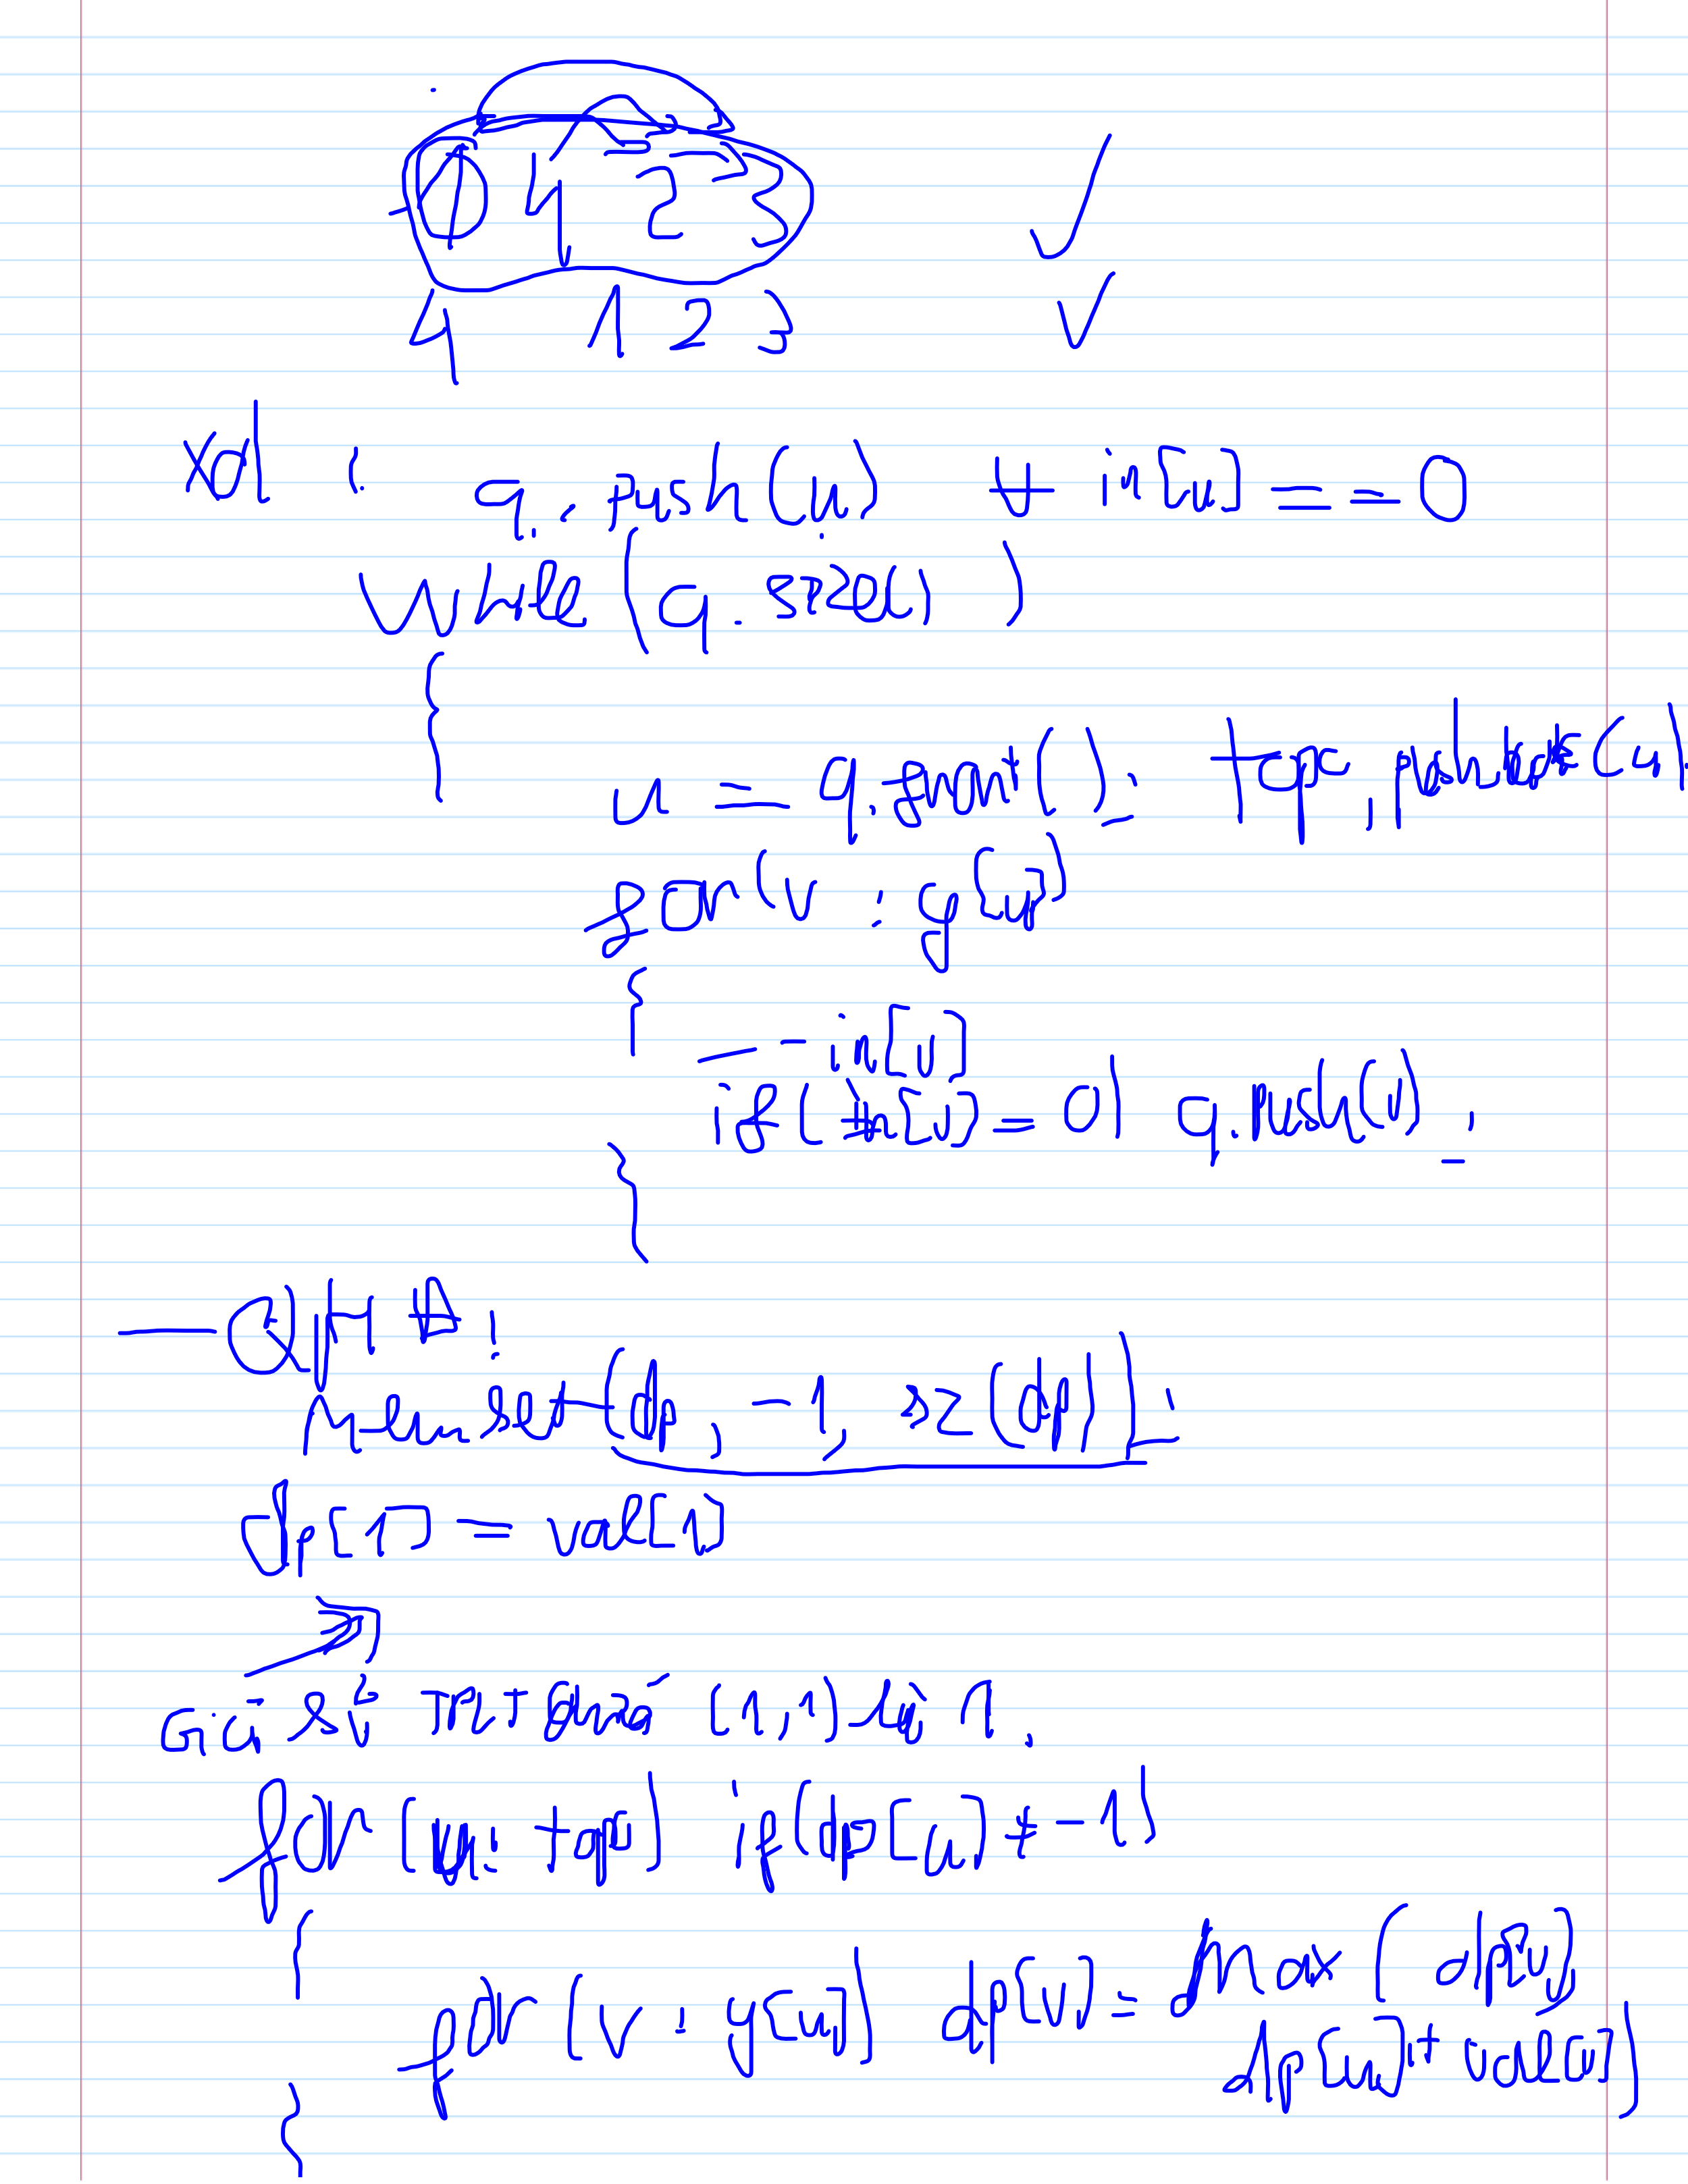 1 4 2 3
4 1 2 3
q.push(u) ∀ in[u] == 0
while (q.size())
{
u = q.front(); topo.push_back(u);
for (v : g[u])
{
--in[v]
if (in[v] == 0) q.push(v);
}
- QHĐ:
memset(dp, -1, sz(dp));
dp[1] = val[1]
Giả sử TPLT chứa (1,1) là 1.
for (u : topo) if (dp[u] ≠ -1)
{
for (v : g[u]) dp[v] = max(dp[v],
dp[u] + val[v])
}